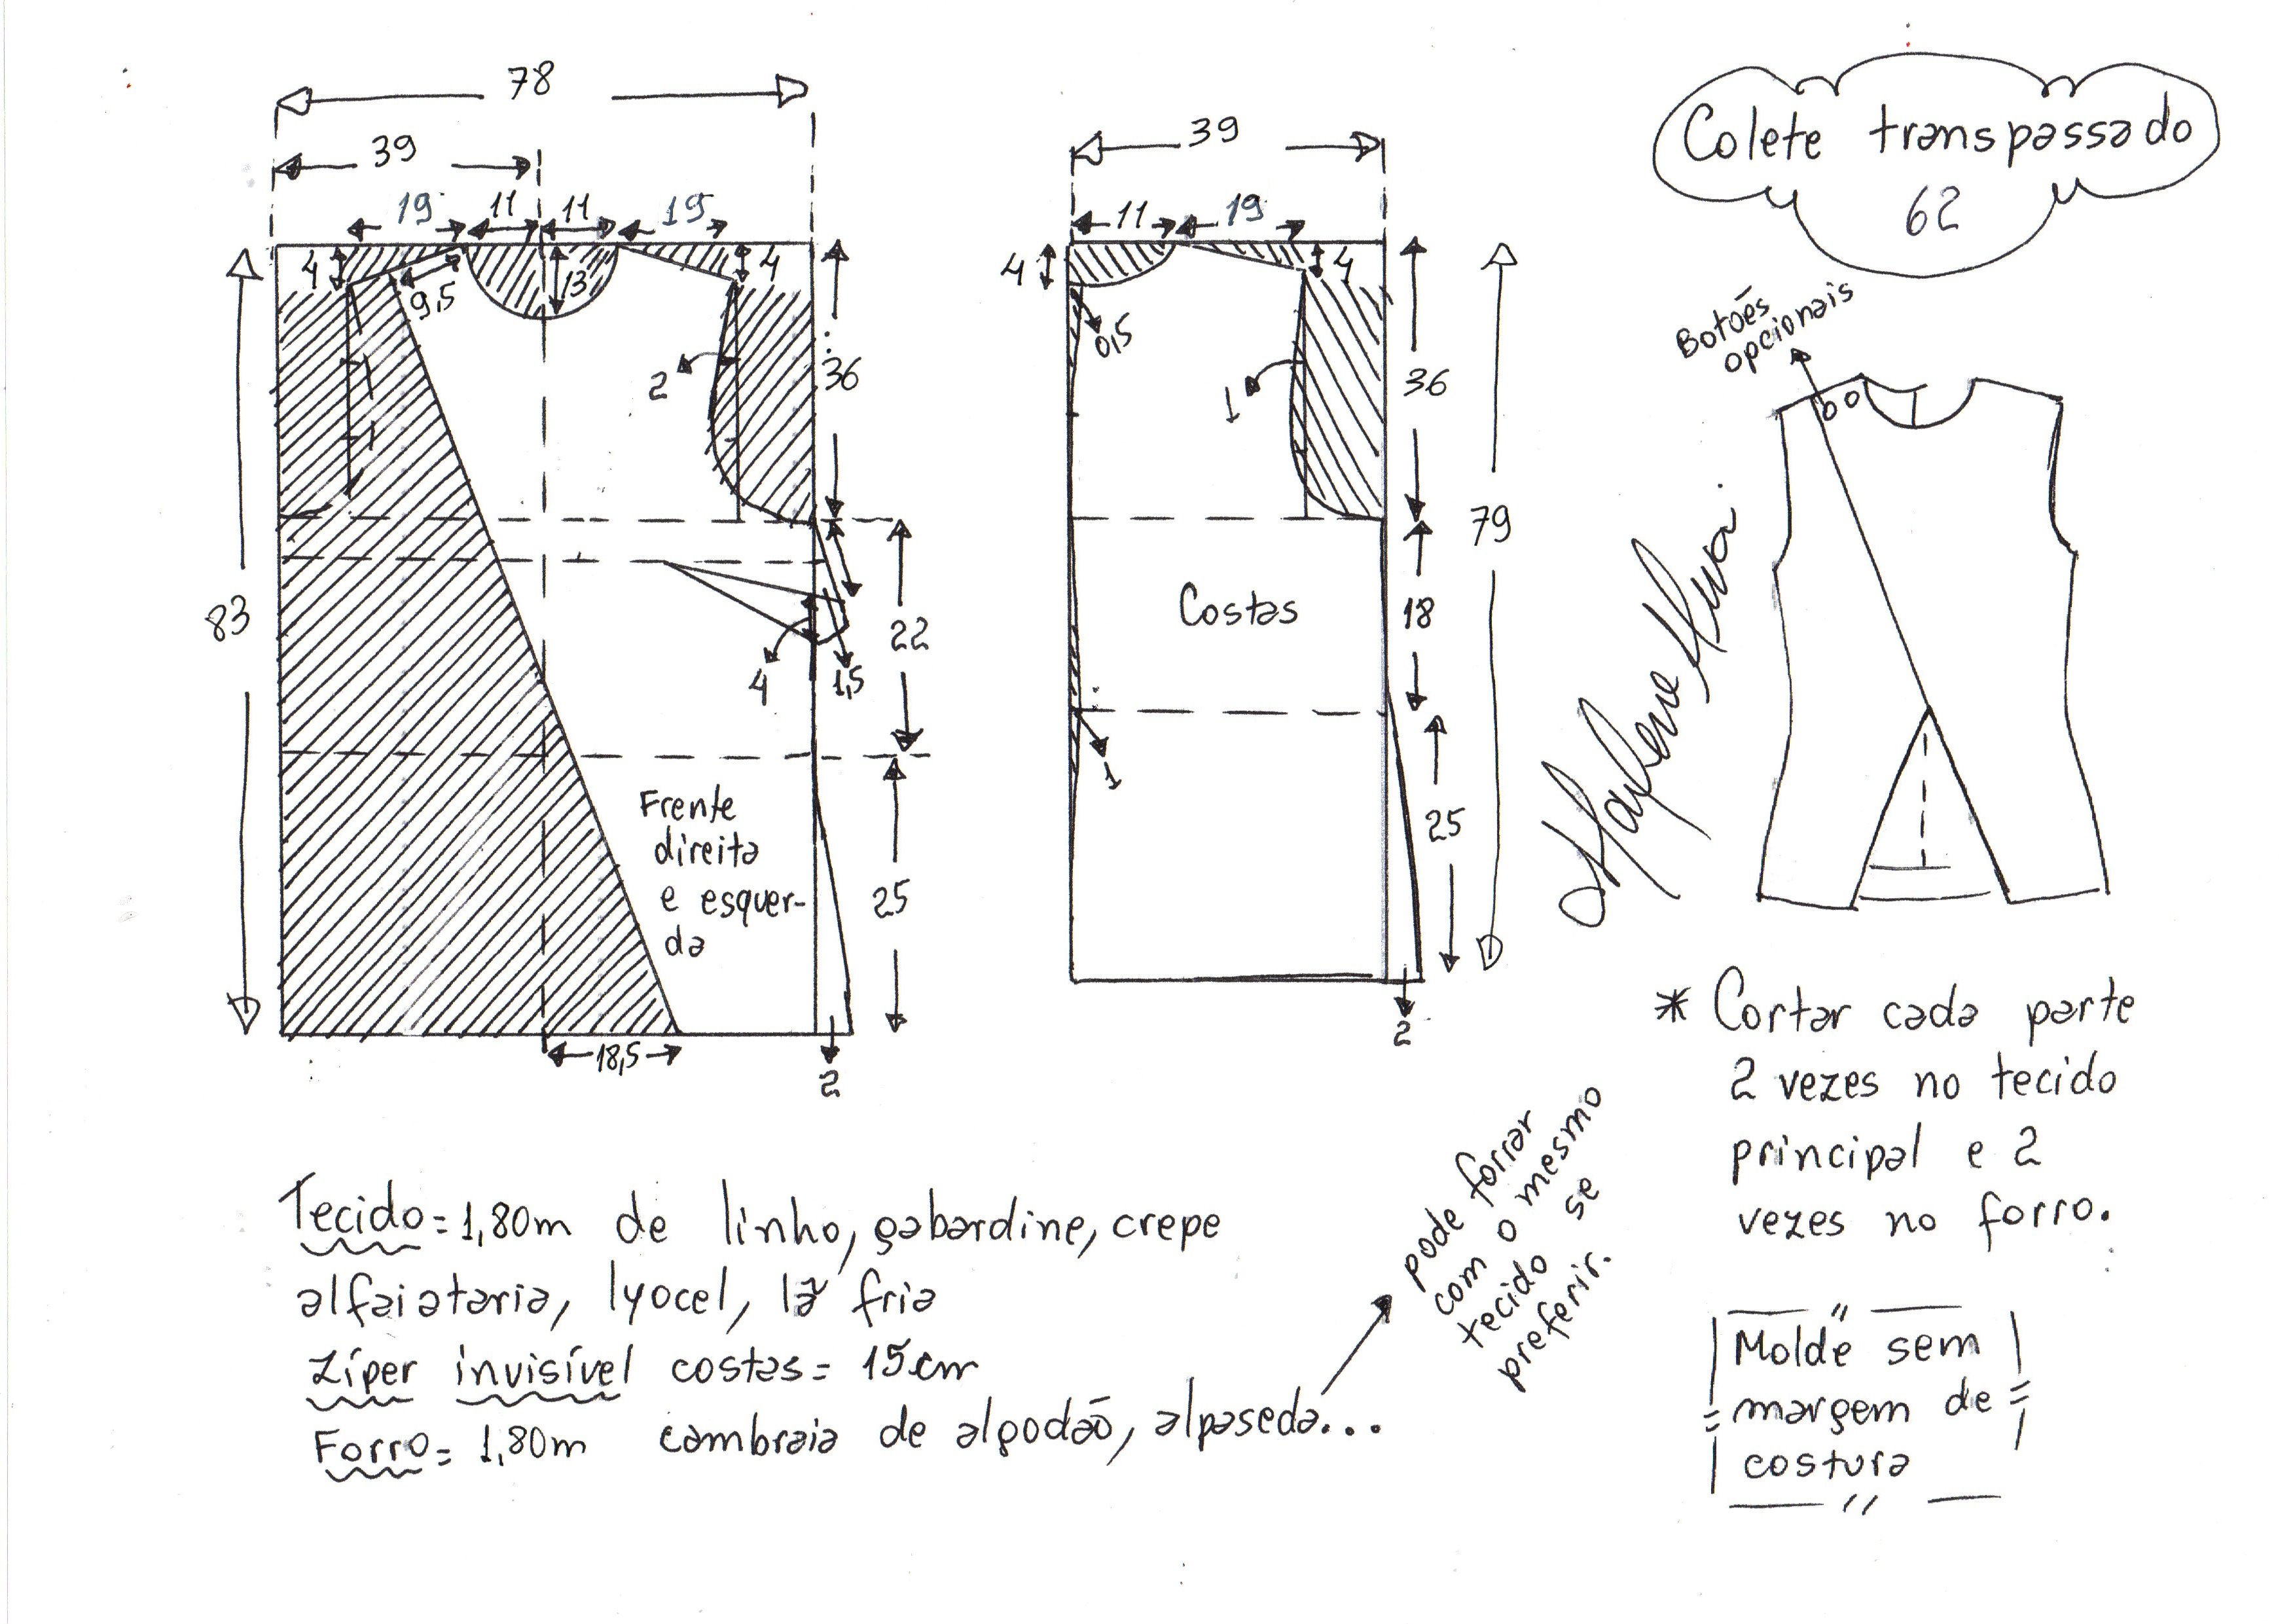 78
39
19 11 11 19
4
9,5
13
4
2
36
83
22
4
1,5
Frente
direita
e esquer-
da
25
18,5
2
39
11 19
4
4
0,5
1
36
79
Costas
18
1
25
2
Colete transpassado
62
Botões
opcionais
* Cortar cada parte
2 vezes no tecido
principal e 2
vezes no forro.
Molde sem
margem de
costura
Tecido = 1,80m de linho, gabardine, crepe
alfaiataria, lyocel, lã fria
Zíper invisível costas = 15cm
Forro = 1,80m cambraia de algodão, alpaseda...
pode forrar
com o mesmo
tecido se
preferir.